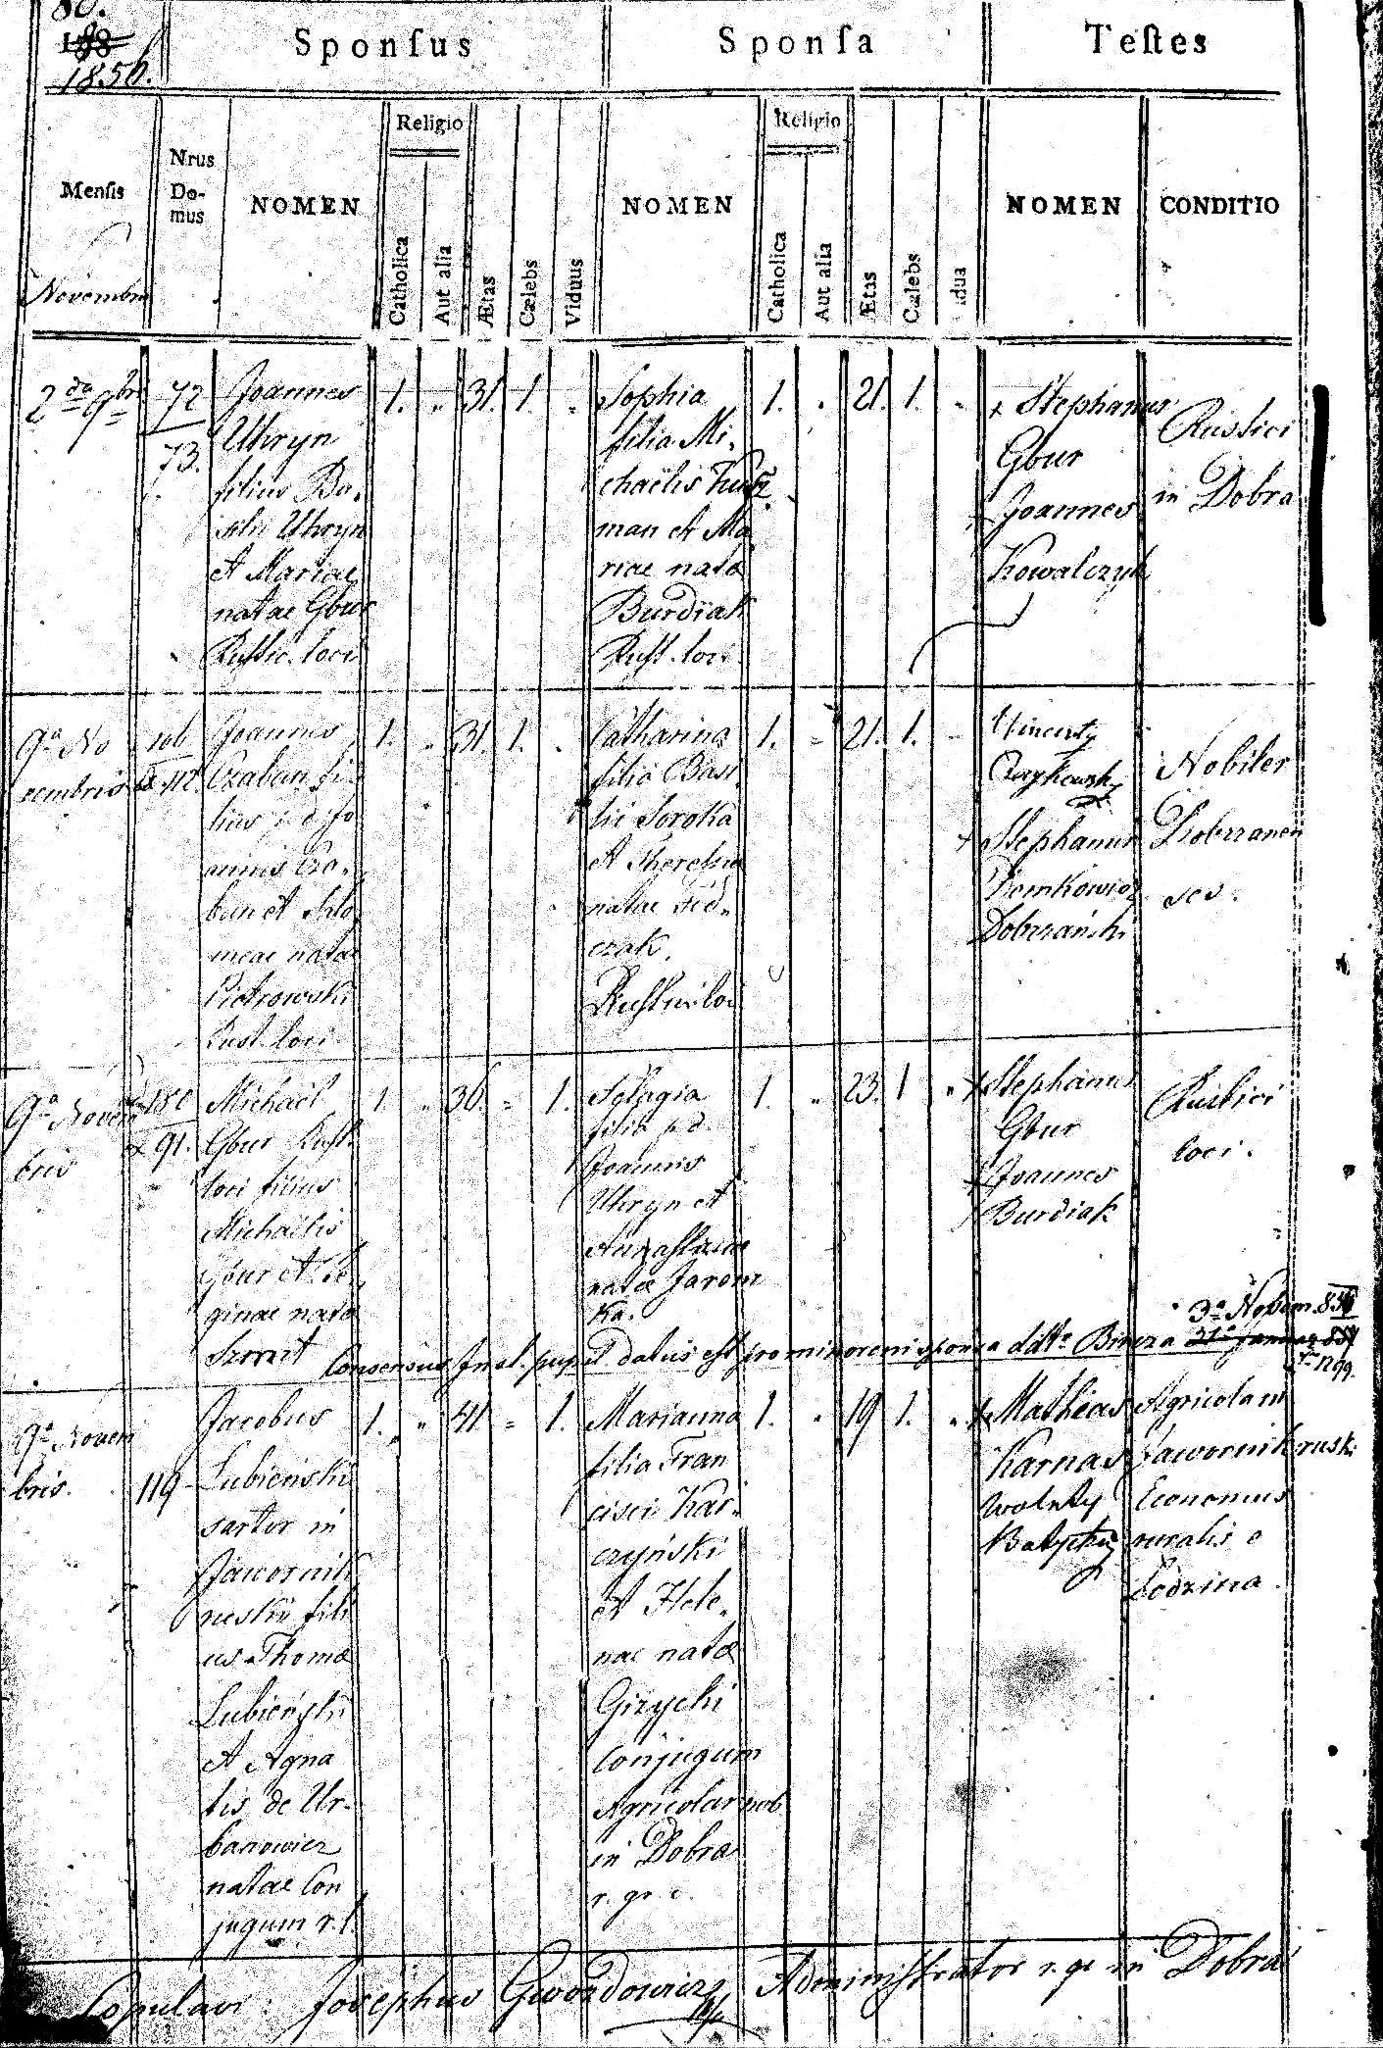 80.
1856.
Sponſus
Sponſa
Teſtes
Menſis
Nrus Do-mus
NOMEN
Religio
Catholica
Aut alia
Ætas
Cælebs
Viduus
NOMEN
Religio
Catholica
Aut alia
Ætas
Cælebs
idua
NOMEN
CONDITIO
Novembris
2da 9bris
72
73.
Joannes
Uhryn
filius Ba-
silii Uhryn
et Mariae
natae Gbur
Rustic. loci
1. " 31. 1. "
Sophia
filia Mi-
chaëlis
man et Ma
riae natae
Burdiak
Rust. loci
1. " 21. 1. "
+ Stephanus
Gbur
+ Joannes
Kowalczyk
Rustici
in Dobra
9a No
vembris
106
112.
Joannes
Czaban fi-
lius p. d. Jo
annis Cza-
ban et Salo
meae natae
Piotrowski
Rust. loci
1. " 31. 1. "
Catharina
filia Basi
lii Soroka
et Theresiae
natae Fed-
czak.
Rustici loci
1. " 21. 1. "
Vincenty
+ Stephanus
Demkowicz
Dobrzański
Nobiles
Dobrzanen
ses.
9a Novem
bris
180
91.
Michaël
Gbur Rust.
loci filius
Michaëlis
Gbur et Re-
ginae natae
Szmit
1. " 36. " 1.
Pelagia
filia p. d.
Joannis
Uhryn et
Anastasiae
natae Jarem
ka.
1. " 23. 1 "
+ Stephanus
Gbur
+ Joannes
Burdiak
Rustici
loci.
Consensus Inst. pupil. datus est pro minoreni sponsa ddto Bircza
3a Novem. 856
1799.
9a Novem
bris.
119
Jacobus
Lubieński
sartor in
Jawornik
ruski fili
us Thomae
Lubieński
et Agna
tis de Ur-
banowicz
natae Con
jugum r. l.
1. " 41. " 1.
Marianna
filia Fran
cisci Kar-
czyński
et Hele-
nae natae
Girzycki
Conjugum
Agricolar nob.
in Dobra
r. gr. c.
1. " 19 1. "
+ Mathias
Karnas
Walenty
Agricola in
Jawornik rusk.
Economus
ruralis e
Lodzina.
Copulavi: Josephus Gwozdowicz Administrator r. gr. in Dobra